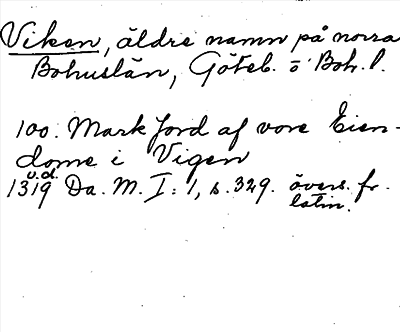 Viken, äldre namn på norra
Bohuslän, Göteb. o. Boh. l.
100. Mark Jord af vore Eien-
dome i Vigen
u.d.
1319 Da. M. I: 1, s. 329. övers. fr.
latin.